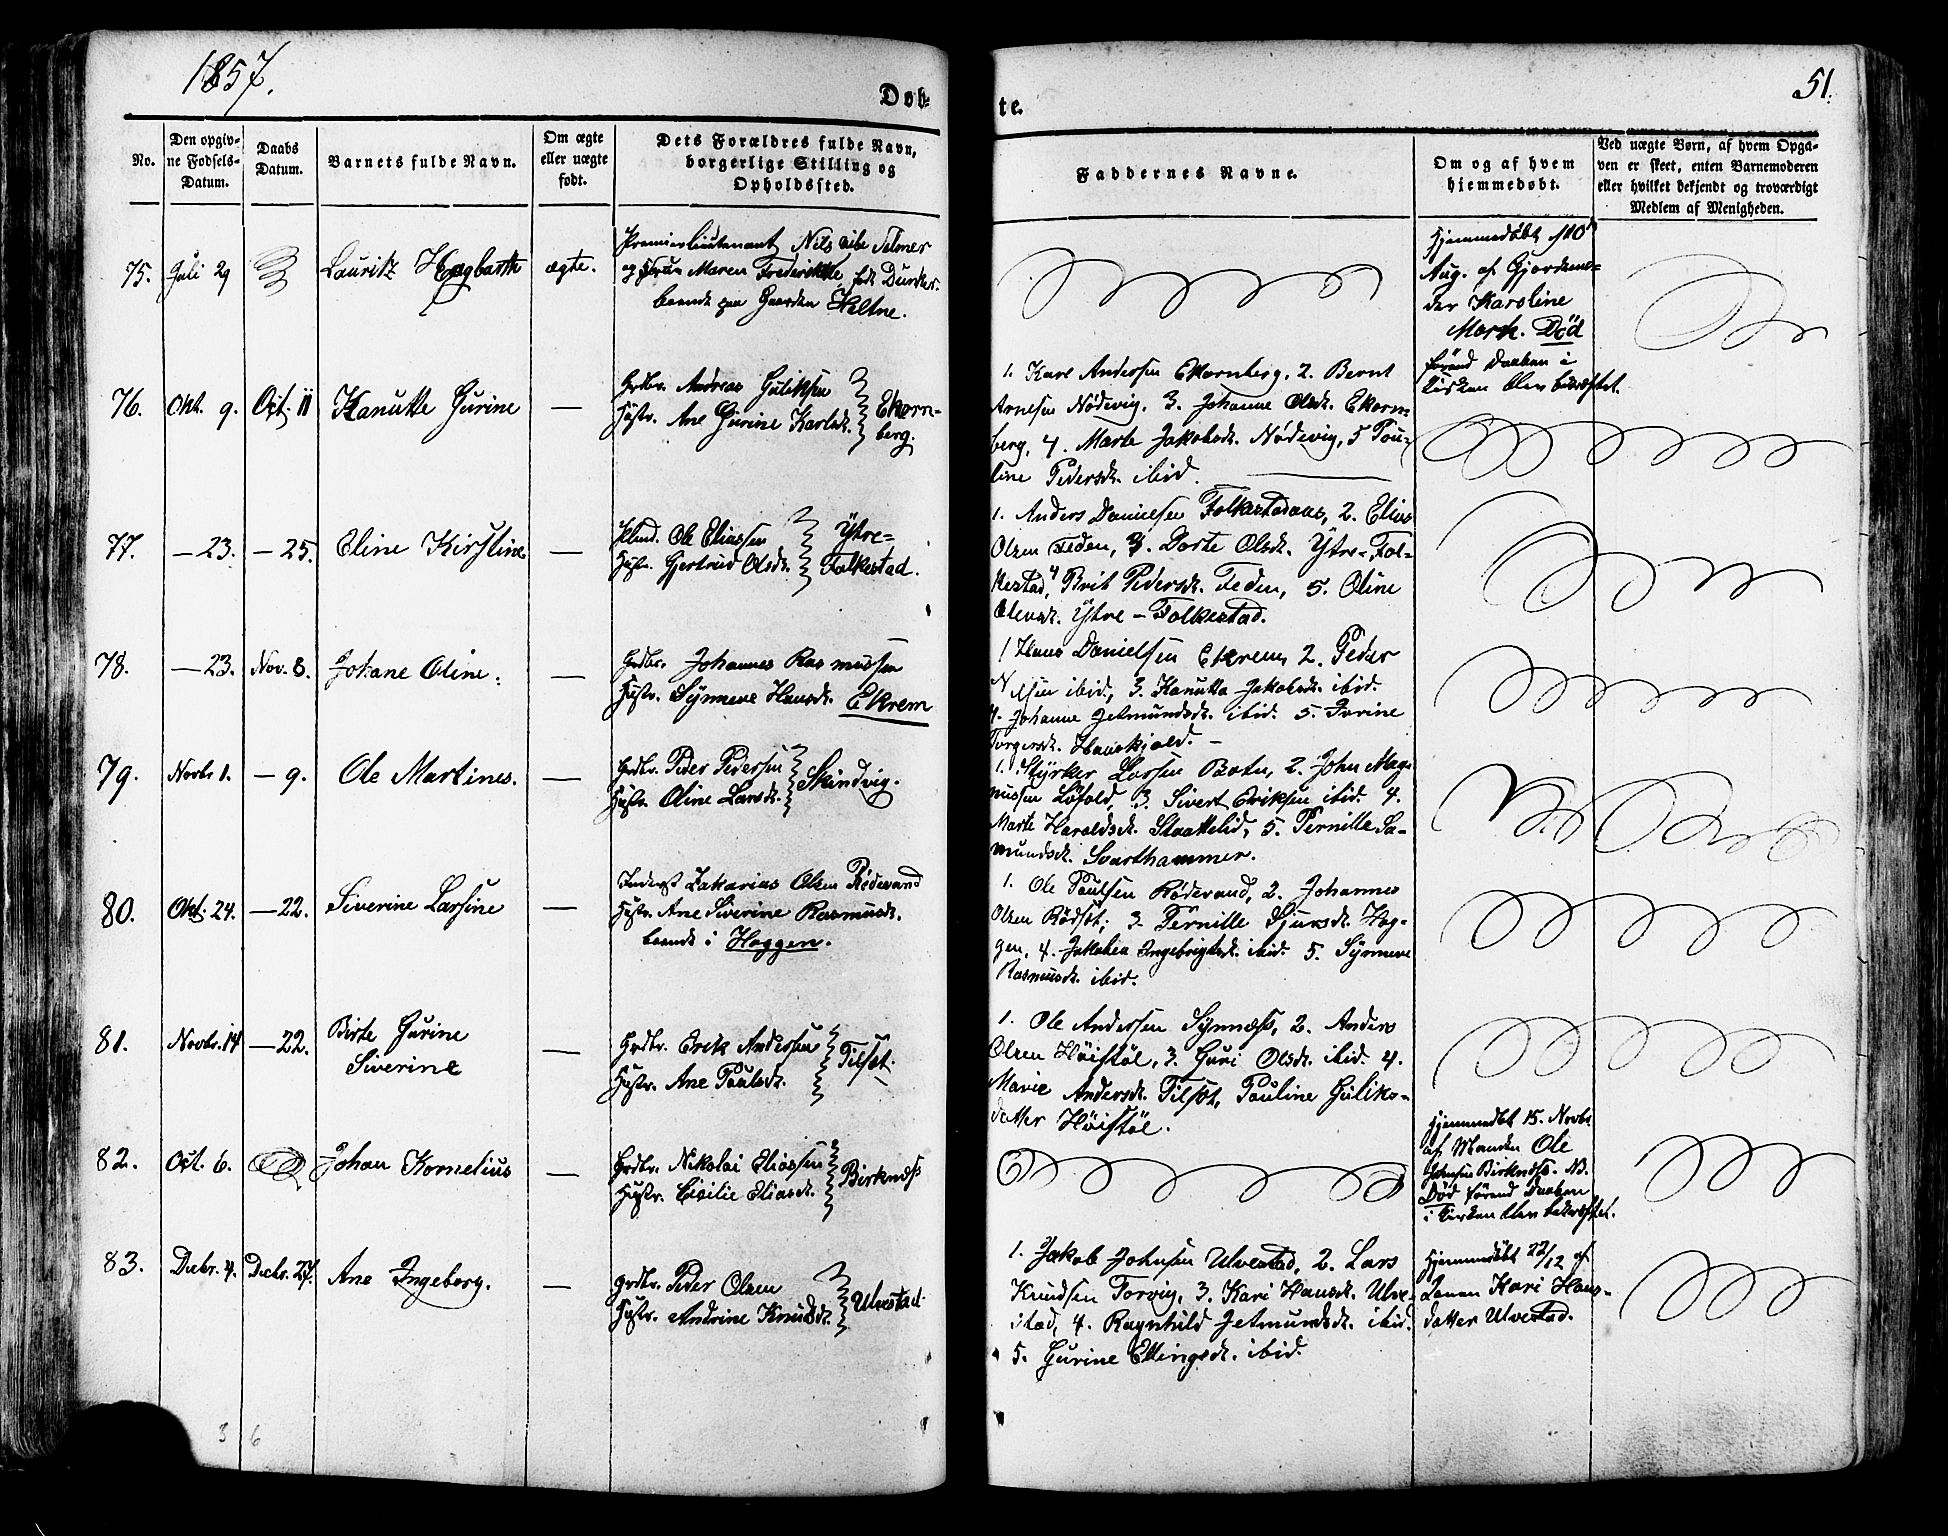 1857.
Døb-
te.
51.
No.
Den opgiv-
ne Fødsels-
Datum.
Daabs
Datum.
Barnets fulde Navn.
Om ægte
eller uægte
født.
Dets Forældres fulde Navn,
borgerlige Stilling og
Opholdssted.
Faddernes Navne.
Om og af hvem
hjemmedøbt.
Ved uægte Børn, af hvem Opga-
ven er skeet, enten Barnemoderen
eller hvilket bekjendt og troværdigt
Medlem af Menigheden.
75. Juli 29 Lauritz Hagbarth ægte.
Premierlieutenant Nils
og Frue Maren Fredrikke, født Duncker.
boende paa Gaarden Heltne.
Hjemmedøbt
Aug. af Gjordemo-
der Karoline
Mork. Død
førend Daaben i
Kirken blev bekræftet.
76. Okt. 9. Oct. 11 Kanutte Gurine —
Grdbr. Andreas Guliksen
Hustr. Ane Gurine Karlsdt.
Ekorn-
berg.
1. Karl Andersen Ekornberg, 2. Bernt
Arnesen Nødevig, 3. Johanne Olsdt. Ekorn-
berg, 4. Marte Jakobsdt. Nødevig, 5 Pou-
line Pedersdt. ibid.
77. — 23. — 25. Eline Kirstine —
Plmd. Ole Eliassen
Hustr. Gjertrud Olsdt.
Ytre-
Folkestad.
1. Anders Danielsen Folkestadaas, 2. Elias
Olsen Feden, 3. Dorte Olsdt. Ytre-Fol-
kestad, 4 Brit Pedersdt. Feden, 5. Oline
Olevdt. Ytre-Folkestad.
78. — 23. Nov. 8. Johane Oline. —
Grdbr. Johannes Rasmussen
Hustr. Synneve Hansdt. Ekrem
1 Hans Danielsen Ekrem, 2. Peder
Nilsen ibid, 3. Kanutta Jakobsdt. ibid.
4. Johanne Jetmundsdt. ibid. 5. Iverine
Torgersdt. Hauskjold. —
79. Novbr 1. — 9. Ole Martines. —
Grdbr. Peder Pedersen
Hustr. Oline Larsdt.
Skindvig.
1. Styrker Larsen Botn, 2. John Mag-
nussen Løfold, 3. Sivert Eriksen ibid. 4.
Marte Haraldsdt. Staattelid, 5. Pernille Sa-
mundsdt. Svarthammer.
80. Okt. 24. — 22. Siverine Larsine —
Inderst Zakarias Olsen Rødevand
Hustr. Ane Siverine Rasmusdt.
boende i Haggen.
1. Ole Paulsen Rødevand, 2. Johannes
Olsen Rødset, 3. Pernille Sjursdt. Hag-
gen, 4. Jakobea Ingebrigtsdt. ibid. 5. Synneve
Rasmusdt. ibid.
81. Novbr. 14 — 22. Birte Gurine
Siverine —
Grdbr. Erik Andersen
Hustr. Ane Paulsdt.
Tilset.
1. Ole Andersen Synnæss, 2. Anders
Olsen Høistøl, 3. Guri Olsdt. ibid. 4.
Marie Andersdt. Tilset, Pauline Guliks-
datter Høistøl.
82. Oct. 6. Johan Kornelius —
Grdbr. Nikolai Eliassen
Hustr. Cicilie Eliasdt.
Birknæss
Hjemmedøbt 15. Novbr
af Manden Ole
Johnsen Birknæss. NB.
Død førend Daaben
i Kirken blev bekræftet.
83. Decbr. 4. Decbr. 27. Ane Ingeborg. —
Grdbr. Peder Olsen
Hustr. Andrine Knudsdt.
Ulvestad.
1. Jakob Johnsen Ulvestad, 2. Lars
Knudsen Torvig, 3. Kari Hansdt. Ulve-
stad, 4. Ragnhild Jetmundsdt. ibid.
5. Gurine Ellingsdt. ibid.
Hjemmedøbt 22/12 af
Konen Kari Hans-
datter Ulvestad.
3 6